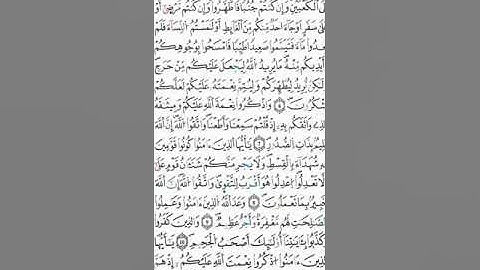 لَى الْكَعْبَيْنِ وَإِن كُنتُمْ جُنُبًا فَاطَّهَّرُوا وَإِن كُنتُم مَّرْضَىٰ أَوْ
لَىٰ سَفَرٍ أَوْ جَاءَ أَحَدٌ مِّنكُم مِّنَ الْغَائِطِ أَوْ لَٰمَسْتُمُ النِّسَاءَ فَلَمْ
ـدُوا مَاءً فَتَيَمَّمُوا صَعِيدًا طَيِّبًا فَامْسَحُوا بِوُجُوهِكُمْ
أَيْدِيكُم مِّنْهُ مَا يُرِيدُ اللَّهُ لِيَجْعَلَ عَلَيْكُم مِّنْ حَرَجٍ
لَٰكِن يُرِيدُ لِيُطَهِّرَكُمْ وَلِيُتِمَّ نِعْمَتَهُ عَلَيْكُمْ لَعَلَّكُمْ
شْكُرُونَ ٦ وَاذْكُرُوا نِعْمَةَ اللَّهِ عَلَيْكُمْ وَمِيثَٰقَهُ
لَّذِي وَاثَقَكُم بِهِ إِذْ قُلْتُمْ سَمِعْنَا وَأَطَعْنَا وَاتَّقُوا اللَّهَ إِنَّ اللَّهَ
لِيمٌ بِذَاتِ الصُّدُورِ ٧ يَٰأَيُّهَا الَّذِينَ ءَامَنُوا كُونُوا قَوَّٰمِينَ
ـهِ شُهَدَاءَ بِالْقِسْطِ وَلَا يَجْرِمَنَّكُمْ شَنَـَٔانُ قَوْمٍ عَلَىٰ
لَّا تَعْدِلُوا اعْدِلُوا هُوَ أَقْرَبُ لِلتَّقْوَىٰ وَاتَّقُوا اللَّهَ إِنَّ اللَّهَ
بِيرٌ بِمَا تَعْمَلُونَ ٨ وَعَدَ اللَّهُ الَّذِينَ ءَامَنُوا وَعَمِلُوا
لصَّٰلِحَٰتِ لَهُم مَّغْفِرَةٌ وَأَجْرٌ عَظِيمٌ ٩ وَالَّذِينَ كَفَرُوا
كَذَّبُوا بِـَٔايَٰتِنَا أُولَٰئِكَ أَصْحَٰبُ الْجَحِيمِ ١٠ يَٰأَيُّهَا
لَّذِينَ ءَامَنُوا اذْكُرُوا نِعْمَتَ اللَّهِ عَلَيْكُمْ إِذْ هَمَّ